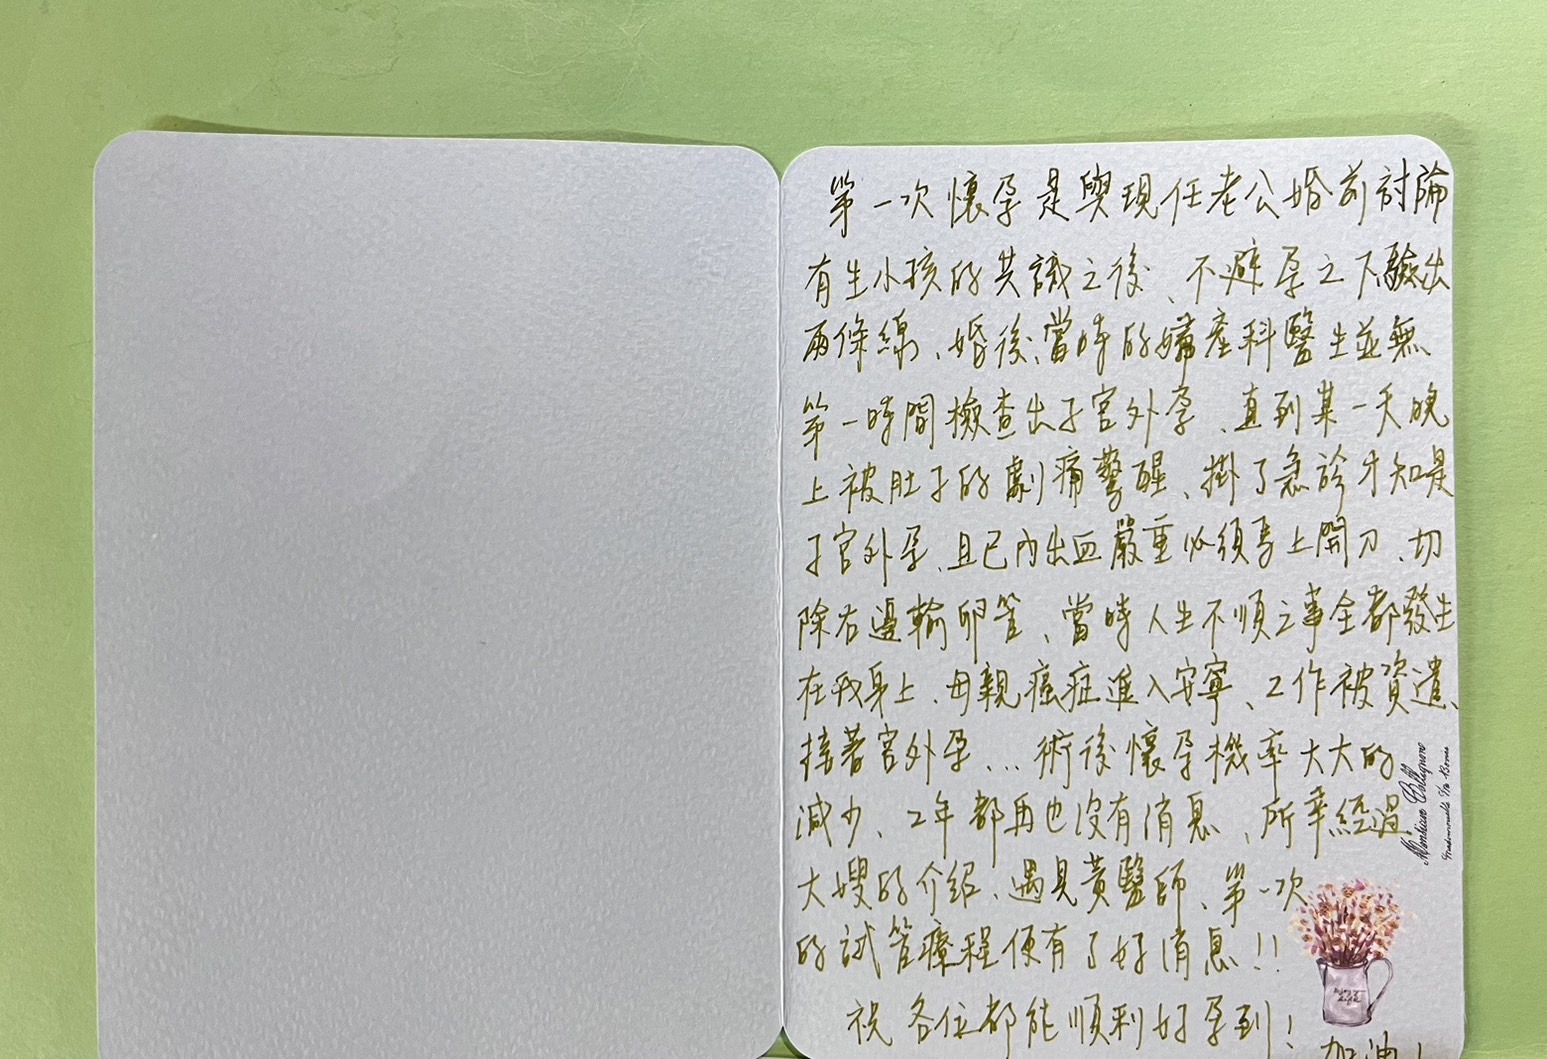 第一次懷孕是與現任老公婚前討論
有生小孩的共識之後、不避孕之下驗出
兩條線、婚後、當時的婦產科醫生並無
第一時間檢查出子宮外孕、直到某一天晚
上被肚子的劇痛驚醒、掛了急診才知是
子宮外孕、且已內出血嚴重必須馬上開刀、切
除右邊輸卵管、當時人生不順之事全都發生
在我身上、母親癌症進入安寧、工作被資遣、
接著宮外孕...術後懷孕機率大大的
減少、2年都再也沒有消息、所幸經過
大嫂的介紹、遇見黃醫師、第一次
的試管療程便有了好消息!!
祝各位都能順利好孕到!
加油!